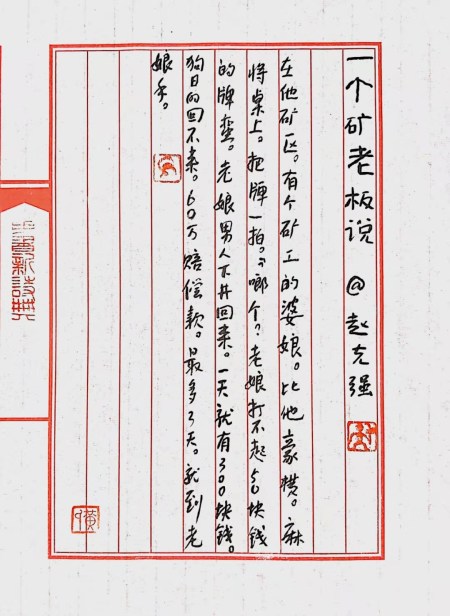 一个矿老板说 @赵克强
在他矿区。有个矿工的婆娘。比他豪横。麻
将桌上。把牌一拍。“啷个？老娘打不起50块钱
的牌蛮。老娘男人下井回来。一天就有300块钱。
狗日的回不来。60万赔偿款。最多3天。就到老
娘手。
新詩典